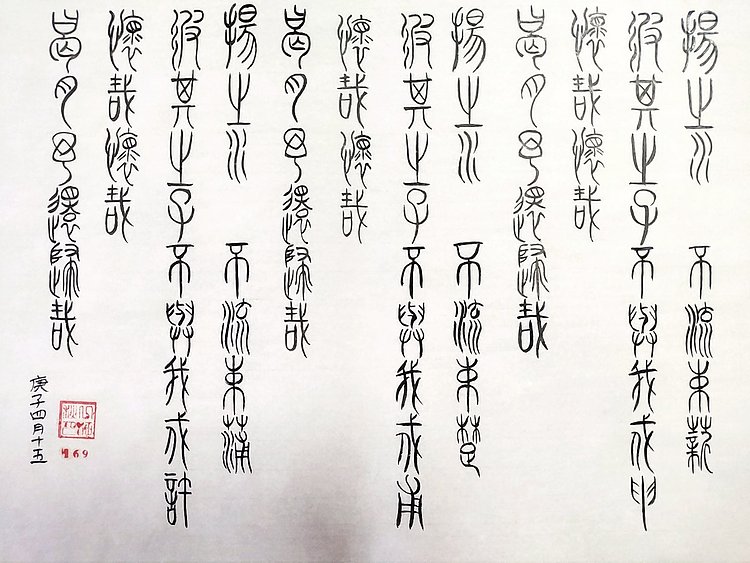 揚之水　不流束薪
彼其之子不與我戍申
懷哉懷哉
曷月予還歸哉
揚之水　不流束楚
彼其之子不與我戍甫
懷哉懷哉
曷月予還歸哉
揚之水　不流束蒲
彼其之子不與我戍許
懷哉懷哉
曷月予還歸哉
庚子四月十五
169